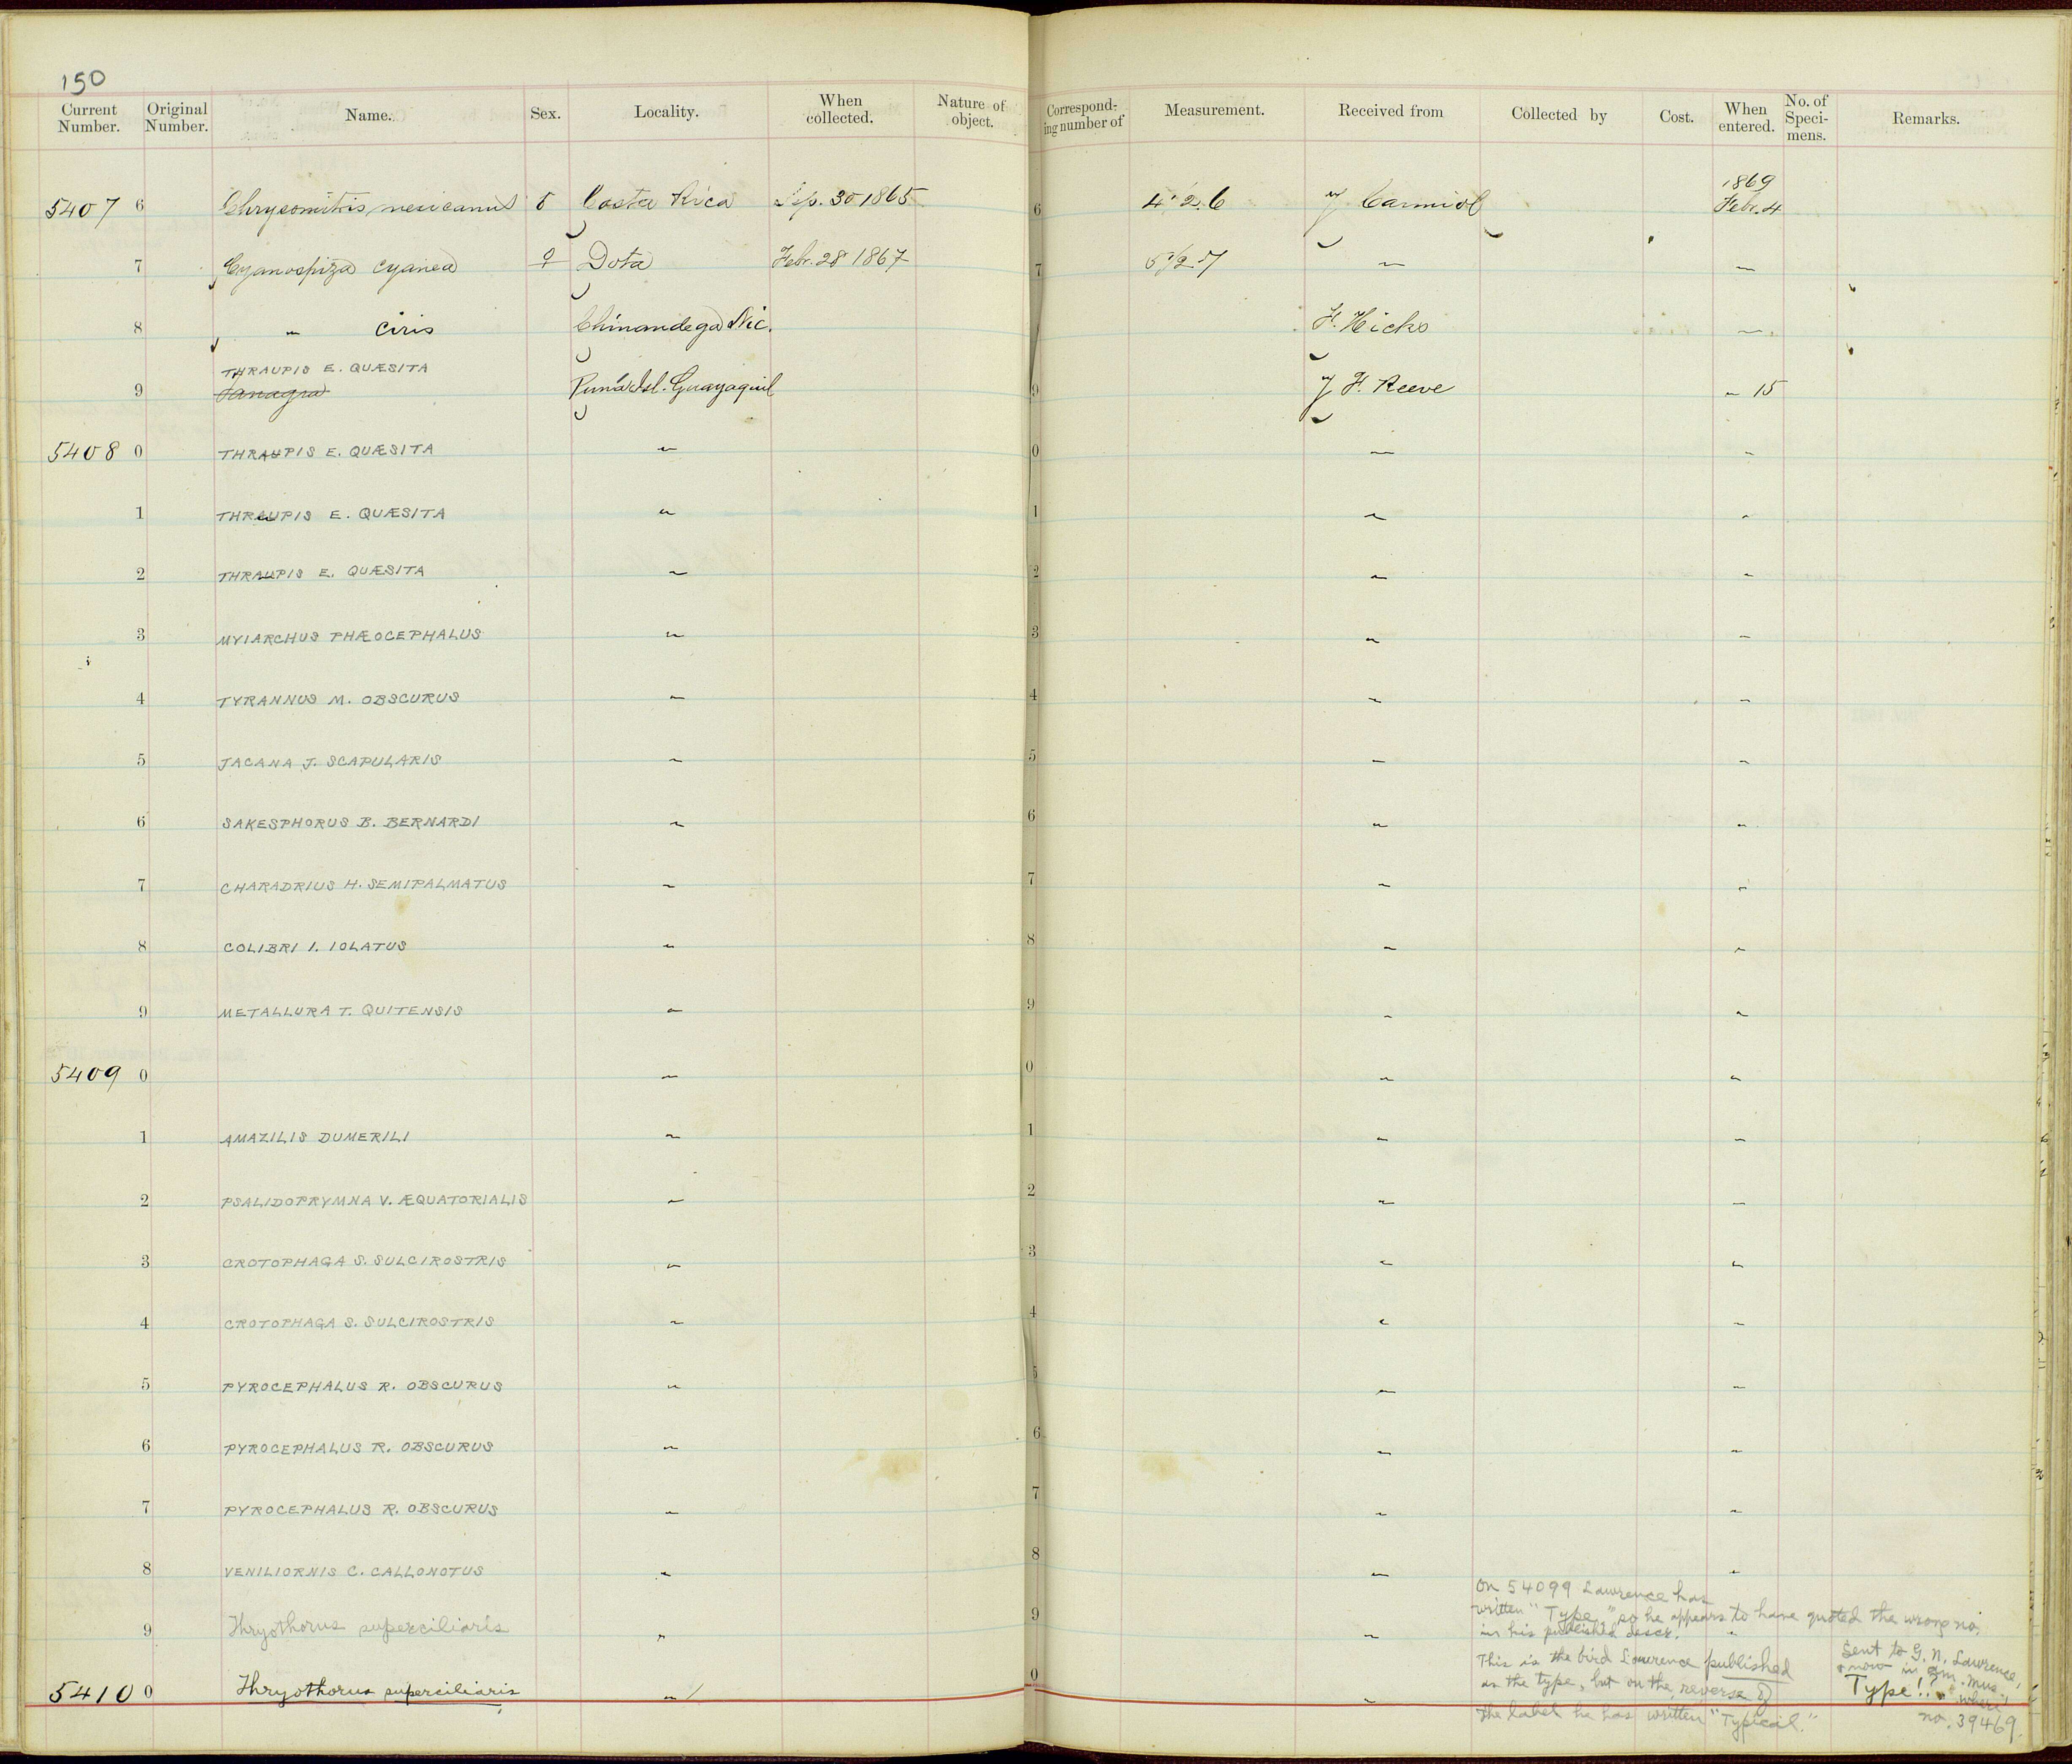 150
Current Number. Original Number. Name. Sex. Locality. When collected. Nature of object. Corresponding number of Measurement. Received from Collected by Cost. When entered. No. of Specimens. Remarks.
1869
5407 6 Chrysomitris mexicanus ♂ Costa Rica Sep. 30 1865 6 J Carmiol Febr. 4
7 Cyanospiza cyanea ♀ Dota Febr. 28 1867 7 " "
8 " ciris Chinandega Nic. F. Hicks "
THRAUPIS E. QUÆSITA
9 Tanagra Puna Isl. Guayaquil 9 J F. Reeve " 15
5408 0 THRAUPIS E. QUÆSITA " 0 " "
1 THRAUPIS E. QUÆSITA " 1 " "
2 THRAUPIS E. QUÆSITA " 2 " "
3 MYIARCHUS PHÆOCEPHALUS " 3 " "
4 TYRANNUS M. OBSCURUS " 4 " "
5 JACANA J. SCAPULARIS " 5 " "
6 SAKESPHORUS B. BERNARDI " 6 " "
7 CHARADRIUS H. SEMIPALMATUS " 7 " "
8 COLIBRI I. IOLATUS " 8 " "
9 METALLURA T. QUITENSIS " 9 " "
5409 0 " 0 " "
1 AMAZILIS DUMERILI " 1 " "
2 PSALIDOPRYMNA V. ÆQUATORIALIS " 2 " "
3 CROTOPHAGA S. SULCIROSTRIS " 3 " "
4 CROTOPHAGA S. SULCIROSTRIS " 4 " "
5 PYROCEPHALUS R. OBSCURUS " 5 " "
6 PYROCEPHALUS R. OBSCURUS " 6 " "
7 PYROCEPHALUS R. OBSCURUS " 7 " "
8 VENILIORNIS C. CALLONOTUS " 8 " "
On 54099 Lawrence has
written "Type," so he appears to have quoted the wrong no.
9 Thryothorus superciliaris " 9 " in his published descr. "
This is the bird Lawrence published
as the type, but on the reverse of
the label he has written "Typical."
Sent to G. N. Lawrence,
& now in Am. Mus.,
Type!? where
no. 39469.
5410 0 Thryothorus superciliaris " 0 "